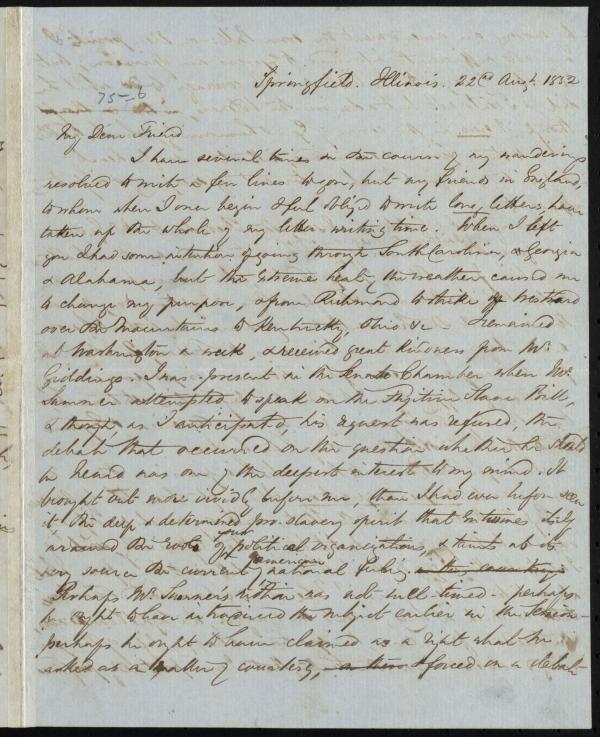 Springfield. Illinois. 22nd Augt. 1852
75-6
My Dear Friend
I have several times in the course of my wanderings
resolved to write a few lines to you, but my friends in England,
to whom when I once begin I feel oblig'd to write long letters, have
taken up the whole of my letter writing time. When I left
you I had some intention of going through South Carolina, & Georgia
& Alabama, but the extreme heat of the weather caused me
to change my purpose, & from Richmond to strike off Westward
over the Mountains to Kentucky, Ohio &c - I remained
at Washington a week, & received great kindness from Mr.
Giddings. I was present in the Senate Chamber when Mr.
Sumner attempted to speak on the Fugitive Slave Bill,
& though as I anticipated, his request was refused, the
debate that occurred on the question whether he should
be heard was one of the deepest interest to my mind. It
brought out more vividly before me, than I had ever before seen
it the deep & determined pro-slavery spirit that entwines itself
around the roots of your political organizations, & taints at its
very source the current of American national feeling in this country
Perhaps Mr. Sumner's motion was not well-timed - perhaps
he ought to have introduced the subject earlier in the Session -
perhaps he ought to have claimed as a right what he
asked as a matter of courtesy, & forced on a debate